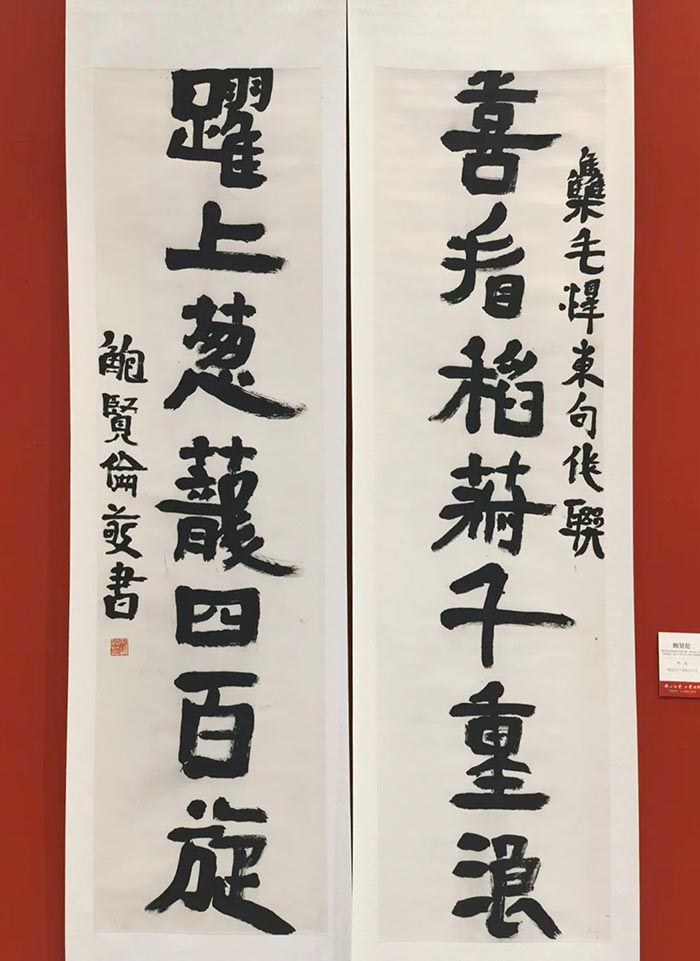 雧毛澤東句作聯
喜看稻菽千重浪
躍上葱蘢四百旋
鮑賢倫敬書
鲍贤伦